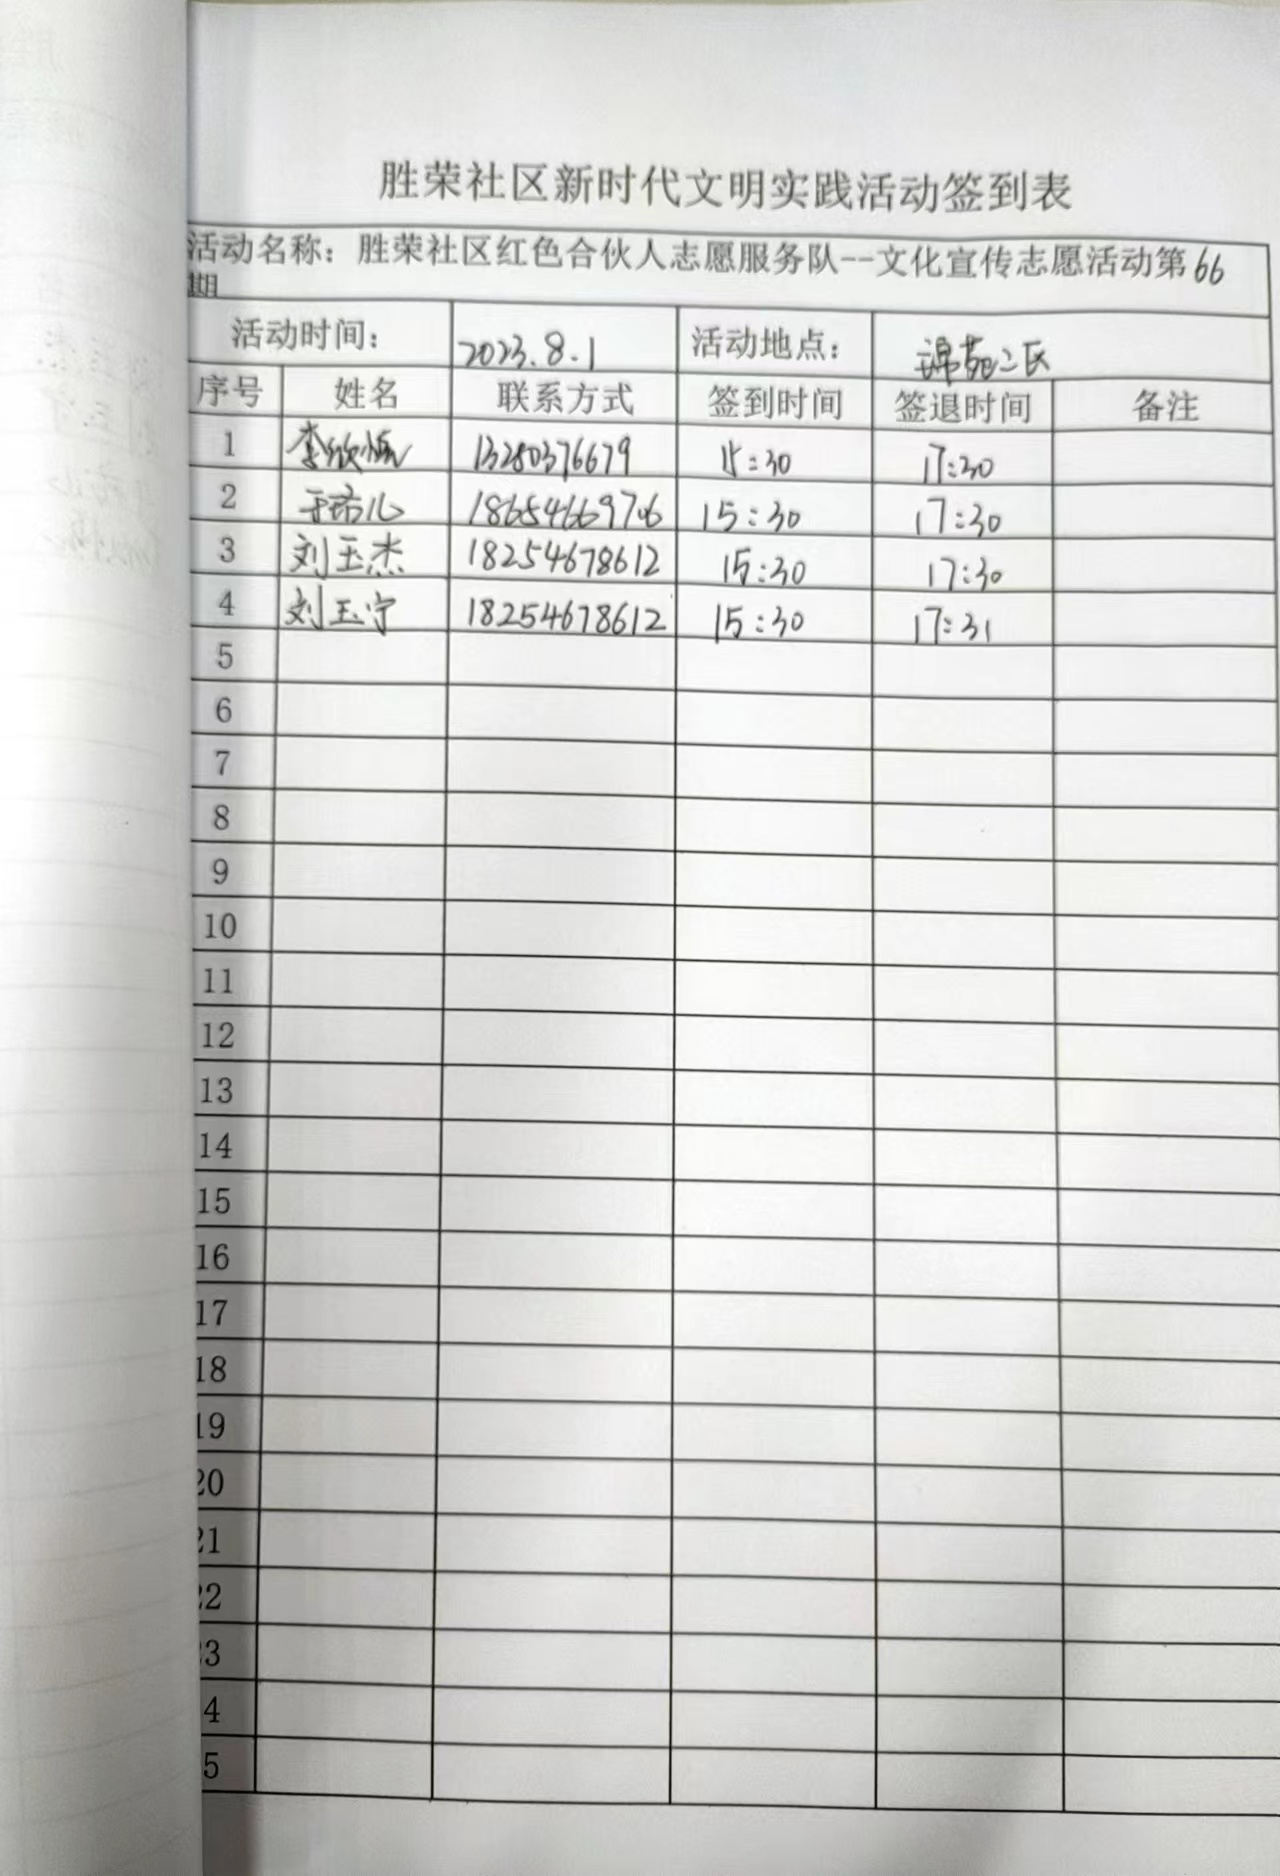 胜荣社区新时代文明实践活动签到表
活动名称：胜荣社区红色合伙人志愿服务队--文化宣传志愿活动第66
期
活动时间： 2023.8.1 活动地点： 锦苑二区
序号 姓名 联系方式 签到时间 签退时间 备注
1 李欣 13280376679 15:30 17:30
2 于 18654669706 15:30 17:30
3 刘玉杰 18254678612 15:30 17:30
4 刘玉宁 18254678612 15:30 17:31
5
6
7
8
9
10
11
12
13
14
15
16
17
18
19
20
21
22
23
4
5